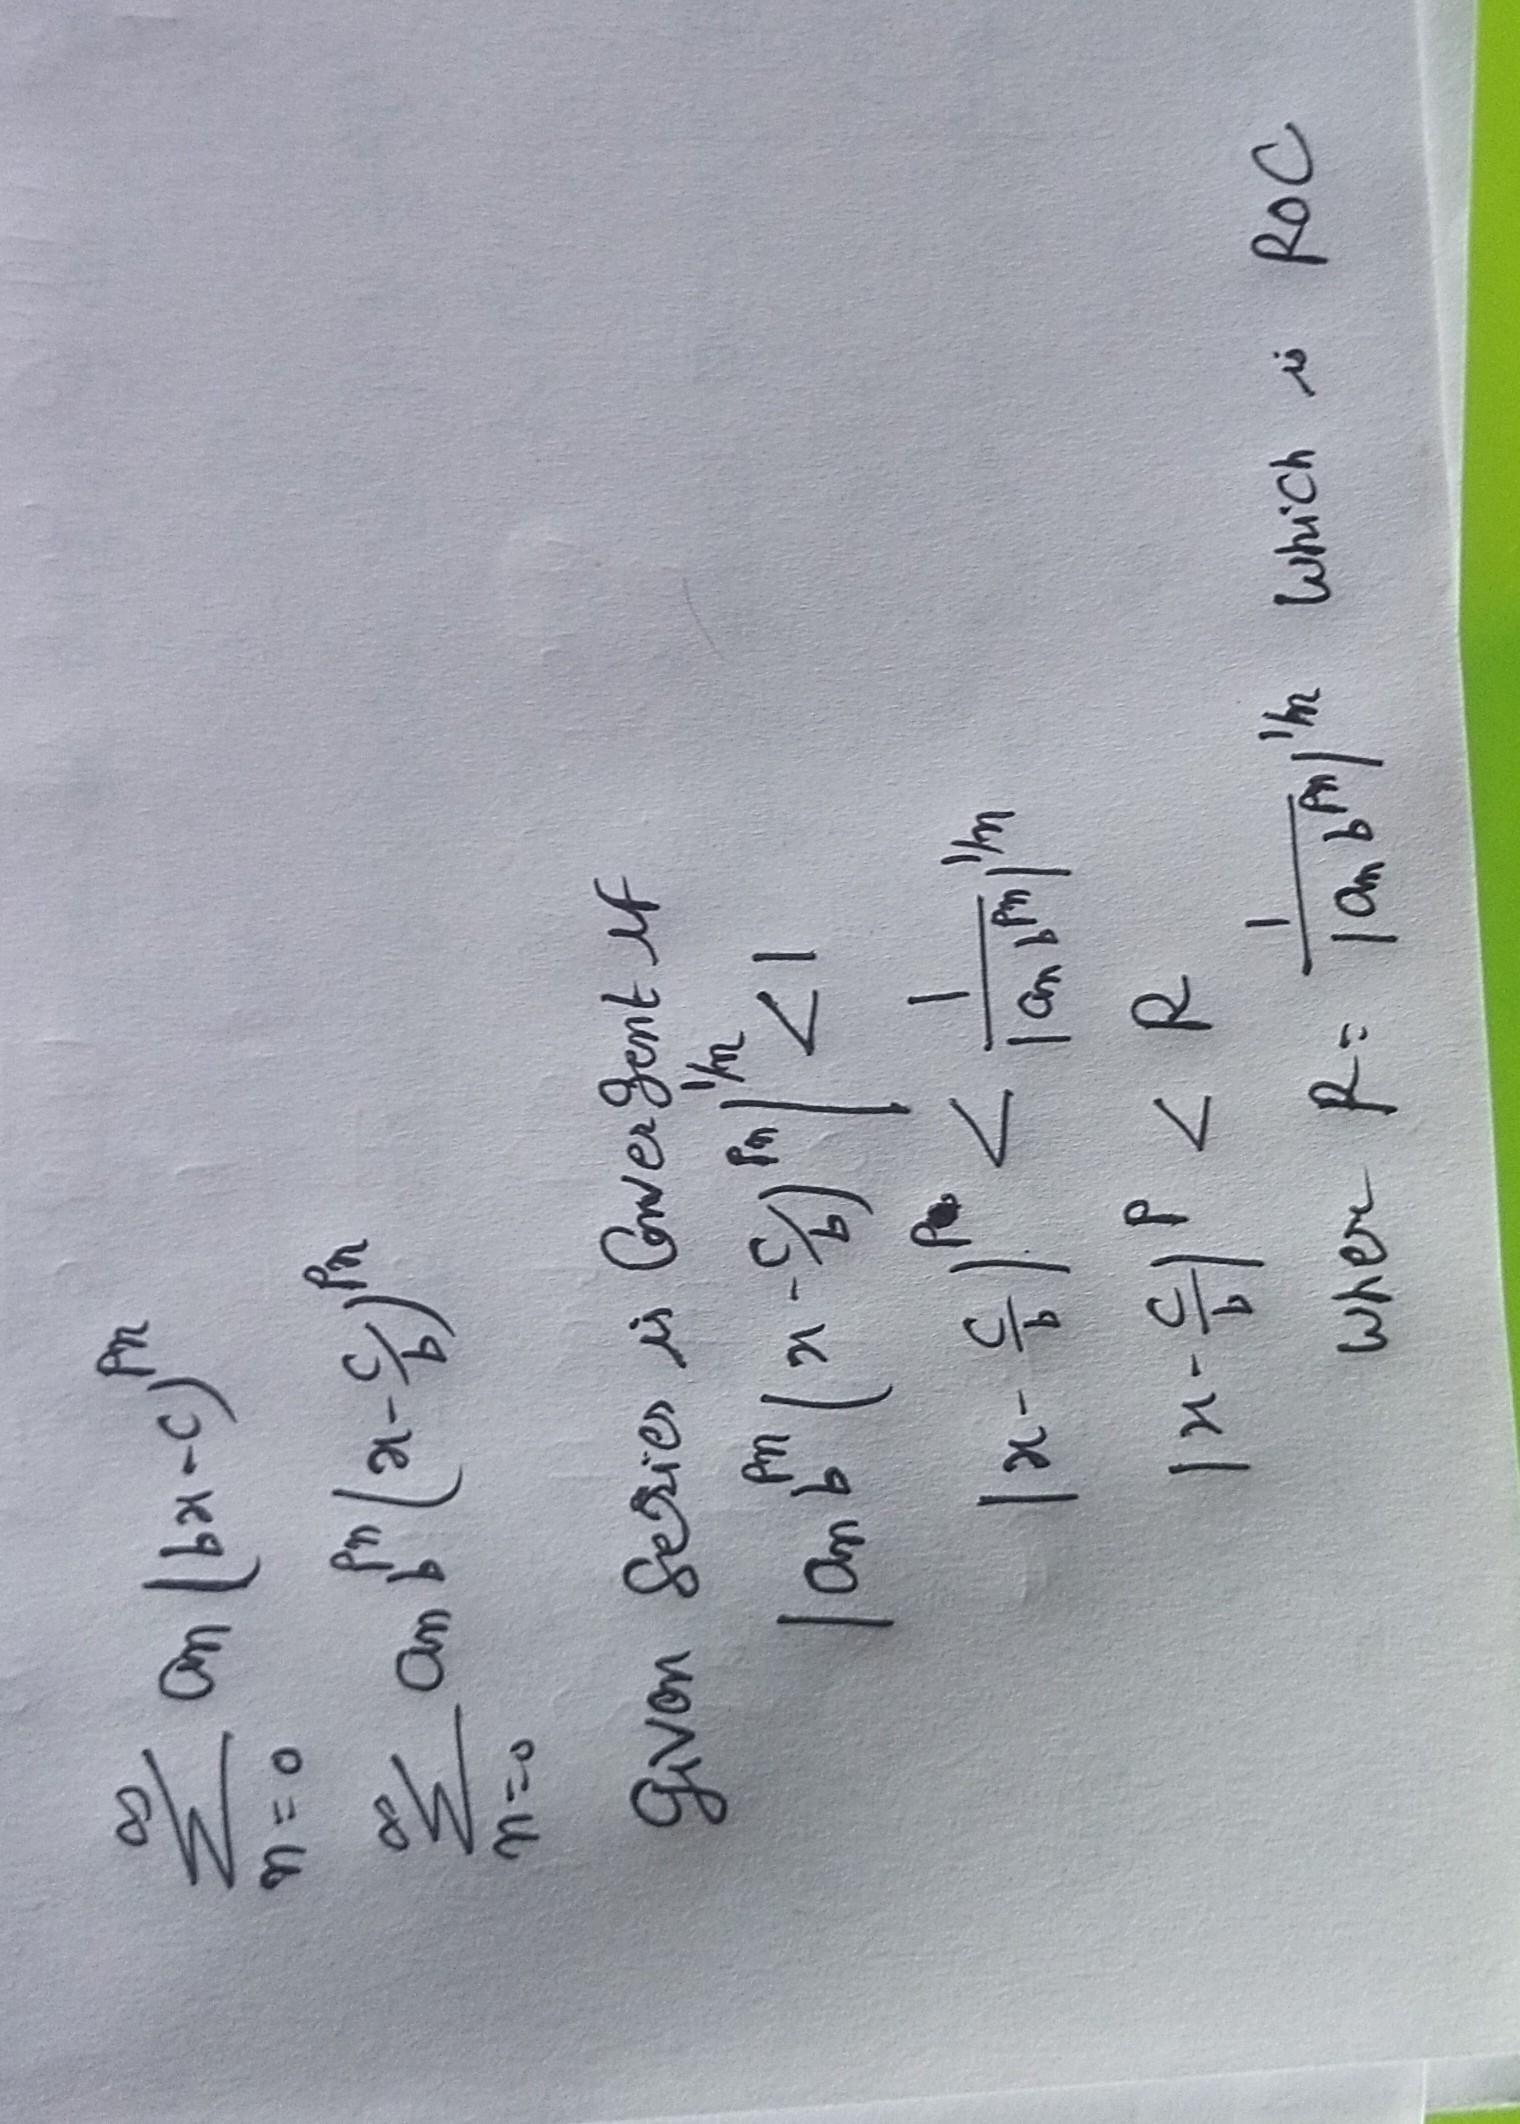 ∞
∑ an (bx-c)^pn
n=0
∞
∑ an b^pn (x - c/b)^pn
n=0
Given Series is Convergent if
|an b^pn (x - c/b)^pn|^1/n < 1
|x - c/b|^p < 1/|an b^pn|^1/n
|x - c/b|^p < R
where R = 1/|an b^pn|^1/n which is ROC